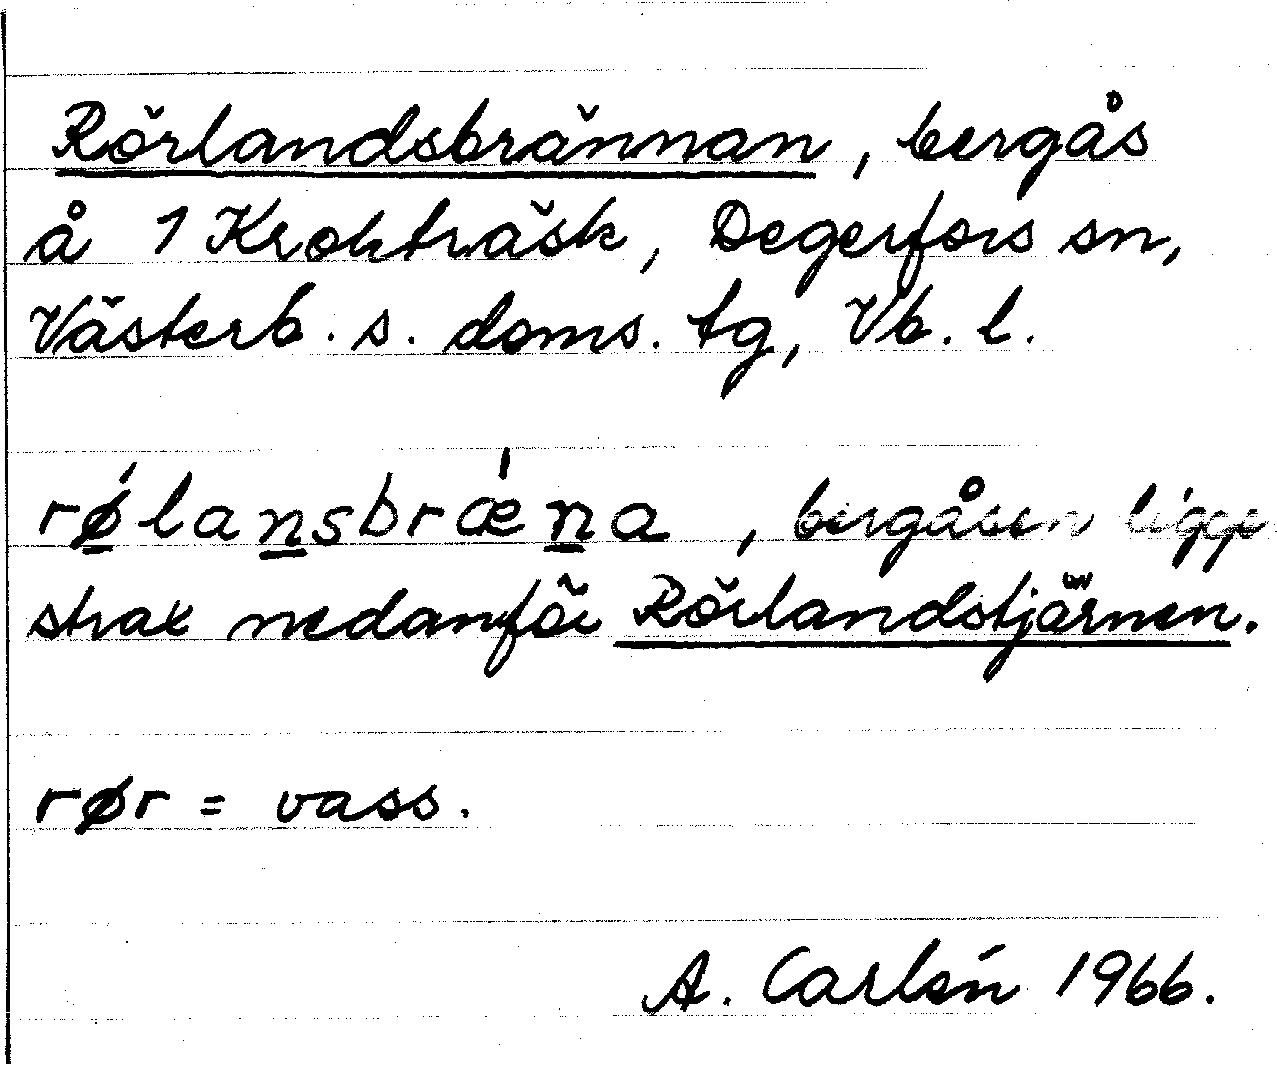 Rörlandsbrännan, bergås
å 1 Krokträsk, Degerfors sn,
Västerb. s. doms. tg, Vb. l.
rǿlansbrǽna, bergåsen ligger
strax nedanför Rörlandstjärnen.
rør = vass.
A. Carlén 1966.